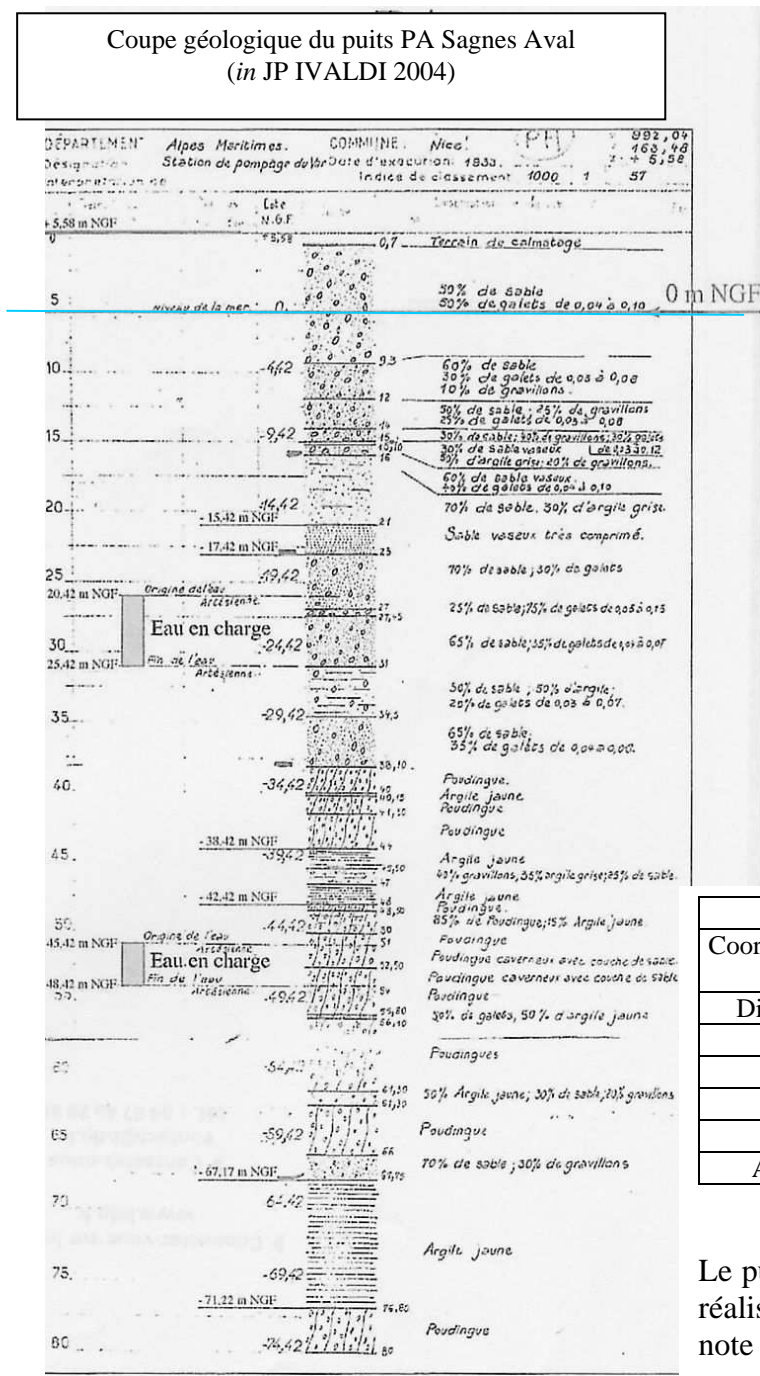 Coupe géologique du puits PA Sagnes Aval
(in JP IVALDI 2004)
DÉPARTEMENT Alpes Maritimes. COMMUNE. Nice. 992,04
Désignation Station de pompage du Var Date d'exécution: 1833. 163,48
+ 5,58
Indice de classement 1000 1 57
Cote
+ 5,58 m NGF N.G.F.
0 +5,58 0,7 Terrain de colmatage
50% de sable
5 Niveau de la mer 0. 50% de galets de 0,04 à 0,10 0 m NGF
10 -4,42 9,3 60% de sable
30% de galets de 0,03 à 0,08
10% de gravillons.
12
50% de sable; 25% de gravillons
25% de galets de 0,03 à 0,08
14
15 -9,42 15 30% de sable; 40% de gravillons; 30% galets
15,10 30% de Sable vaseux de 0,03 à 0,12
16 50% d'argile grise; 20% de gravillons.
60% de sable vaseux.
40% de galets de 0,04 à 0,10
20 -14,42 70% de sable, 30% d'argile grise.
- 15,42 m NGF 21
Sable vaseux très comprimé.
- 17,42 m NGF 23
25 -19,42 70% de sable; 30% de galets
20,42 m NGF Origine de l'eau
Artésienne 27 25% de sable; 75% de galets de 0,05 à 0,15
27,45
Eau en charge
30 -24,42 65% de sable; 35% de galets de
25,42 m NGF Fin de l'eau 31
Artésienne
50% de sable; 50% d'argile;
20% de galets de 0,03 à 0,07.
35 -29,42 34,5
65% de sable;
35% de galets de 0,04 à
38,10
40 -34,42 Poudingue.
40 Argile jaune
40,15 Poudingue
Poudingue
- 38,42 m NGF 44
45 -39,42 Argile jaune
45,50 40% gravillons, 35% argile grise; 25% de sable.
47
- 42,42 m NGF 48 Argile jaune
Poudingue.
50 -44,42 50 85% de Poudingue; 15% Argile jaune
45,42 m NGF Origine de l'eau 51 Poudingue
Artésienne
Eau en charge 52,50 Poudingue caverneux avec couche de sable.
48,42 m NGF Fin de l'eau 54 Poudingue caverneux avec couche de sable
55 Artésienne -49,42 Poudingue
55,80
56,10 50% de galets, 50% d'argile jaune
60 -54,42 Poudingues
61,30 50% Argile jaune; 30% de sable; 20% gravillons
65 -59,42 Poudingue
66
- 67,17 m NGF 67,75 70% de sable; 30% de gravillons
70 -64,42
Argile jaune
75 -69,42
- 71,22 m NGF 76,80
80 -74,42 80 Poudingue
Coor
Di
A
Le pu
réalis
note